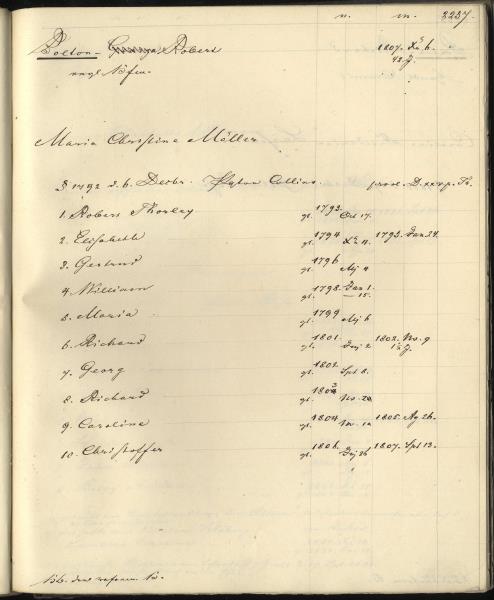 n. m. 2237.
Bolton - George Robert 1807. Xb 6.
engl. 48 J.
Maria Christine Möller
1792 d. 6. Decbr. Pyton Collins. prov. D. xxv p.
1. Robert Thorley gl. 1793. Oct 17.
2. Elisabeth gl. 1794 Xb 11. 1795. Jan 24.
3. Gertrud gl. 1796 Mj 4
4. William gl. 1798. Jan 1.
— 15.
5. Maria gl. 1799 Mj 6
6. Richard gl. 1801. 2 1802. No. 9
1½ J.
7. Georg gl. 1802. Spt 8.
8. Richard gl. 1803 No. 20
9. Caroline gl. 1804. No. 10 1805. Ag 26.
10. Christoffer gl. 1806. 26 1807. Spt 13.